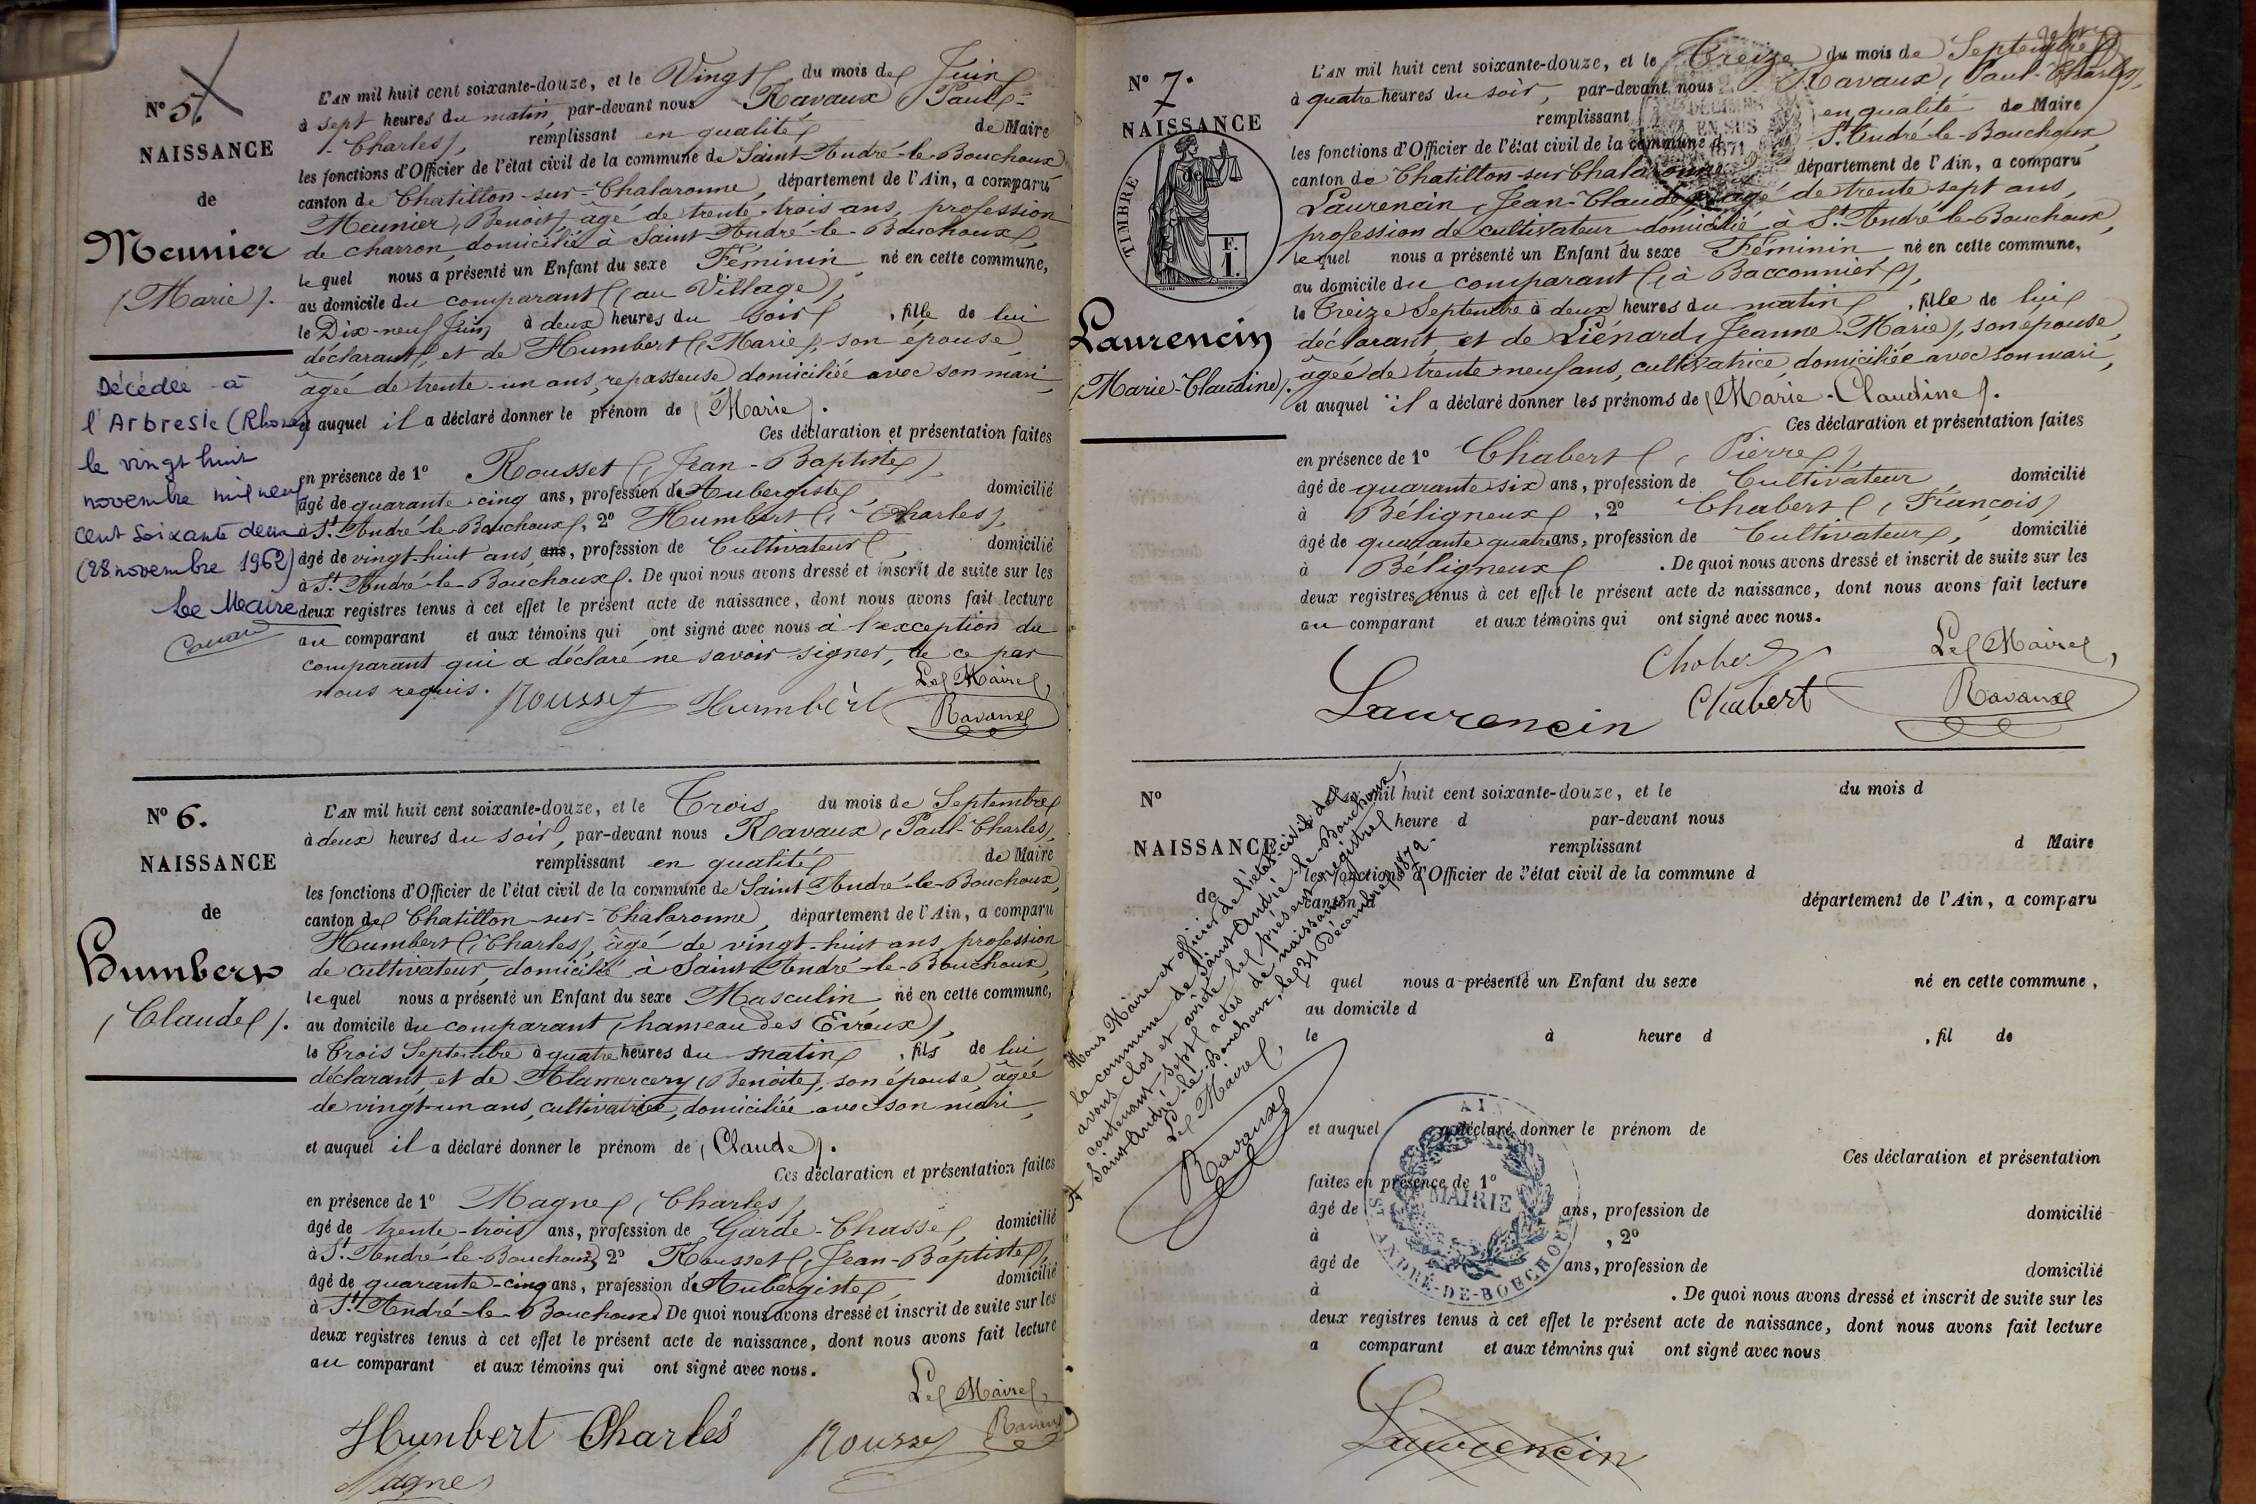 N° 5.
NAISSANCE
de
Meunier
(Marie).
Décédée à
l'Arbresle (Rhône)
le vingt huit
novembre mil neuf
cent soixante deux
(28 novembre 1962)
Le Maire
L'AN mil huit cent soixante-douze, et le Vingt du mois de Juin
à sept heures du matin, par-devant nous Ravaux (Paul-
Charles), remplissant en qualité de Maire
les fonctions d'Officier de l'état civil de la commune de Saint-André-le-Bouchoux
canton de Chatillon-sur-Chalaronne, département de l'Ain, a comparu
Meunier, Benoit, âgé de trente-trois ans, profession
de charron, domicilié à Saint-André-le-Bouchoux,
lequel nous a présenté un Enfant du sexe Féminin né en cette commune,
au domicile du comparant (au Village),
le Dix-neuf Juin à deux heures du soir, fille de lui
déclarant, et de Humbert (Marie), son épouse,
âgée de trente-un ans, repasseuse, domiciliée avec son mari,
et auquel il a déclaré donner le prénom de (Marie).
Ces déclaration et présentation faites
en présence de 1° Rousset (Jean-Baptiste),
âgé de quarante-cinq ans, profession d'Aubergiste, domicilié
à St. André-le-Bouchoux, 2° Humbert (Charles),
âgé de vingt-huit ans, ans, profession de Cultivateur, domicilié
à St. André-le-Bouchoux. De quoi nous avons dressé et inscrit de suite sur les
deux registres tenus à cet effet le présent acte de naissance, dont nous avons fait lecture
au comparant et aux témoins qui ont signé avec nous à l'exception du
comparant qui a déclaré ne savoir signer, de ce par
nous requis. Le Maire,
Rousset Humbert Ravaux
N° 6.
NAISSANCE
de
Humbert
(Claude).
L'AN mil huit cent soixante-douze, et le Trois du mois de Septembre
à deux heures du soir, par-devant nous Ravaux (Paul-Charles),
remplissant en qualité de Maire
les fonctions d'Officier de l'état civil de la commune de Saint-André-le-Bouchoux,
canton de Chatillon-sur-Chalaronne, département de l'Ain, a comparu
Humbert (Charles), âgé de vingt-huit ans, profession
de cultivateur, domicilié à Saint-André-le-Bouchoux,
lequel nous a présenté un Enfant du sexe Masculin né en cette commune,
au domicile du comparant (hameau des Erroux),
le Trois Septembre à quatre heures du matin, fils de lui
déclarant, et de Alamercery (Benoite), son épouse, âgée
de vingt-un ans, cultivatrice, domiciliée avec son mari,
et auquel il a déclaré donner le prénom de (Claude).
Ces déclaration et présentation faites
en présence de 1° Magne (Charles),
âgé de trente-trois ans, profession de Garde-Chasse, domicilié
à St. André-le-Bouchoux, 2° Rousset (Jean-Baptiste),
âgé de quarante-cinq ans, profession d'Aubergiste, domicilié
à St. André-le-Bouchoux. De quoi nous avons dressé et inscrit de suite sur les
deux registres tenus à cet effet le présent acte de naissance, dont nous avons fait lecture
au comparant et aux témoins qui ont signé avec nous.
Le Maire,
Humbert Charles Rousset Ravaux
Magne
N° 7.
NAISSANCE
de
TIMBRE
F.
1.
Laurencin
(Marie-Claudine).
DÉCIMES
EN SUS
1871
L'AN mil huit cent soixante-douze, et le Treize du mois de Septembre
à quatre heures du soir, par-devant nous Ravaux, Paul-Charles,
remplissant en qualité de Maire
les fonctions d'Officier de l'état civil de la commune d St. André-le-Bouchoux
canton de Chatillon-sur-Chalaronne département de l'Ain, a comparu
Laurencin, Jean-Claude, âgé de trente-sept ans,
profession de cultivateur domicilié à St. André-le-Bouchoux,
lequel nous a présenté un Enfant du sexe Féminin né en cette commune,
au domicile du comparant (à Bacconnier),
le Treize Septembre à deux heures du matin, fille de lui
déclarant et de Liénard, Jeanne-Marie, son épouse,
âgée de trente-neuf ans, cultivatrice, domiciliée avec son mari,
et auquel il a déclaré donner les prénoms de (Marie-Claudine).
Ces déclaration et présentation faites
en présence de 1° Chabert (Pierre),
âgé de quarante-six ans, profession de Cultivateur domicilié
à Béligneux, 2° Chabert (François)
âgé de quarante-quatre ans, profession de Cultivateur, domicilié
à Béligneux. De quoi nous avons dressé et inscrit de suite sur les
deux registres tenus à cet effet le présent acte de naissance, dont nous avons fait lecture
au comparant et aux témoins qui ont signé avec nous.
Le Maire,
Laurencin Chabert Chabert Ravaux
N°
NAISSANCE
de
L'AN mil huit cent soixante-douze, et le du mois d
heure d par-devant nous
remplissant d Maire
les fonctions d'Officier de l'état civil de la commune d
canton d département de l'Ain, a comparu
quel nous a présenté un Enfant du sexe né en cette commune,
au domicile d
le à heure d , fil de
et auquel a déclaré donner le prénom de
Ces déclaration et présentation
faites en présence de 1°
âgé de ans, profession de domicilié
à , 2°
âgé de ans, profession de domicilié
à . De quoi nous avons dressé et inscrit de suite sur les
deux registres tenus à cet effet le présent acte de naissance, dont nous avons fait lecture
a comparant et aux témoins qui ont signé avec nous
Nous Maire et officier de l'état-civil de
la commune de Saint-André-le-Bouchoux,
avons clos et arrêté le présent registre
contenant sept actes de naissance.
A Saint-André-le-Bouchoux, le 31 Décembre 1872.
Le Maire,
Ravaux
AIN
MAIRIE
ST ANDRÉ-DE-BOUCHOUX
Laurencin